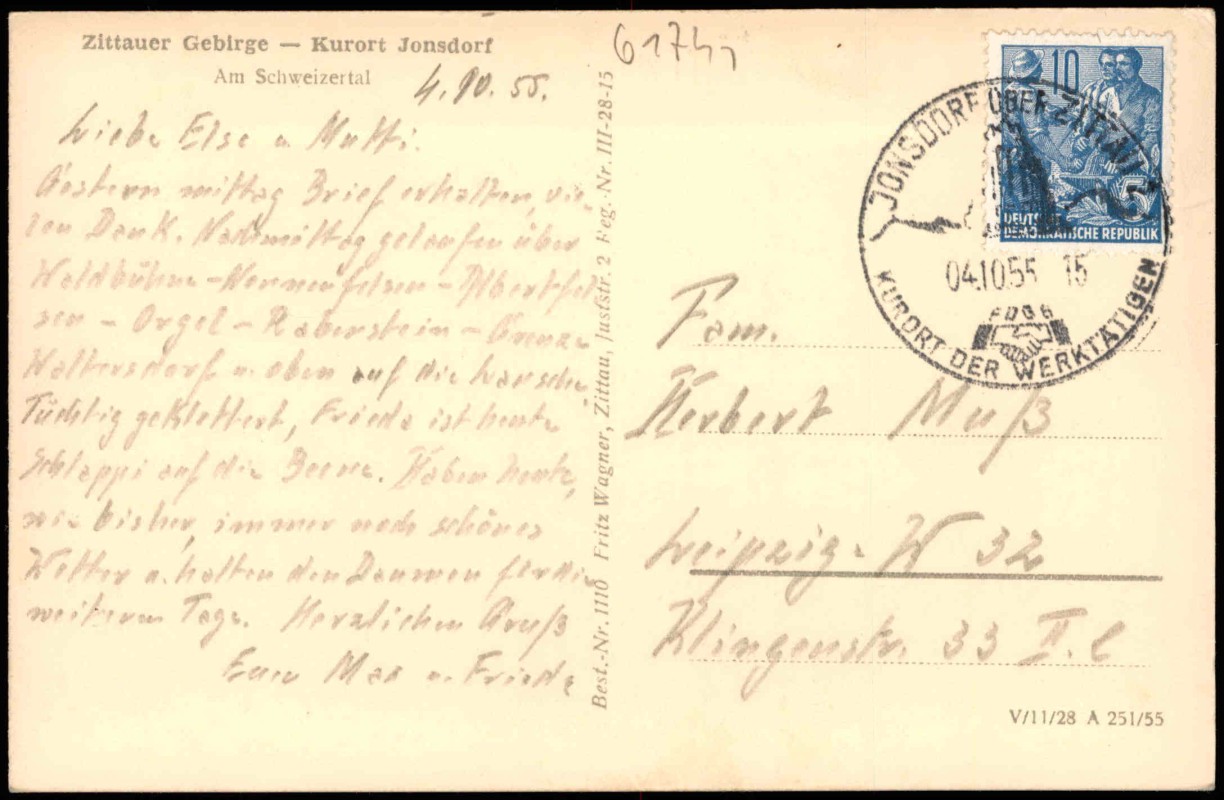 Zittauer Gebirge — Kurort Jonsdorf
Am Schweizertal
4.10.55.
Liebe Else u Mutti.
Gestern mittag Brief erhalten, vie-
len Dank. Nachmittag gelaufen über
Waldbühne - Nonnenfelsen - Albertfel
sen - Orgel - Rabenstein - Grenze
Waltersdorf u. oben auf die Lausche.
Tüchtig geklettert, Frieda ist heute
schlappi auf die Beene. Haben heute,
wie bisher, immer noch schönes
Wetter u. halten den Daumen für die
weiteren Tage. Herzlichen Gruß
Euer Max u. Frieda
Best.-Nr. 1110 Fritz Wagner, Zittau, Juststr. 2 Reg.-Nr. III-28-15
6174
10
5
DEUTSCHE
DEMOKRATISCHE REPUBLIK
JONSDORF ÜBER ZITTAU
04.10.55 15
FDGB
KURORT DER WERKTÄTIGEN
Fam.
Herbert Muß
Leipzig-W 32
Klingenstr. 33 II. l
V/11/28 A 251/55